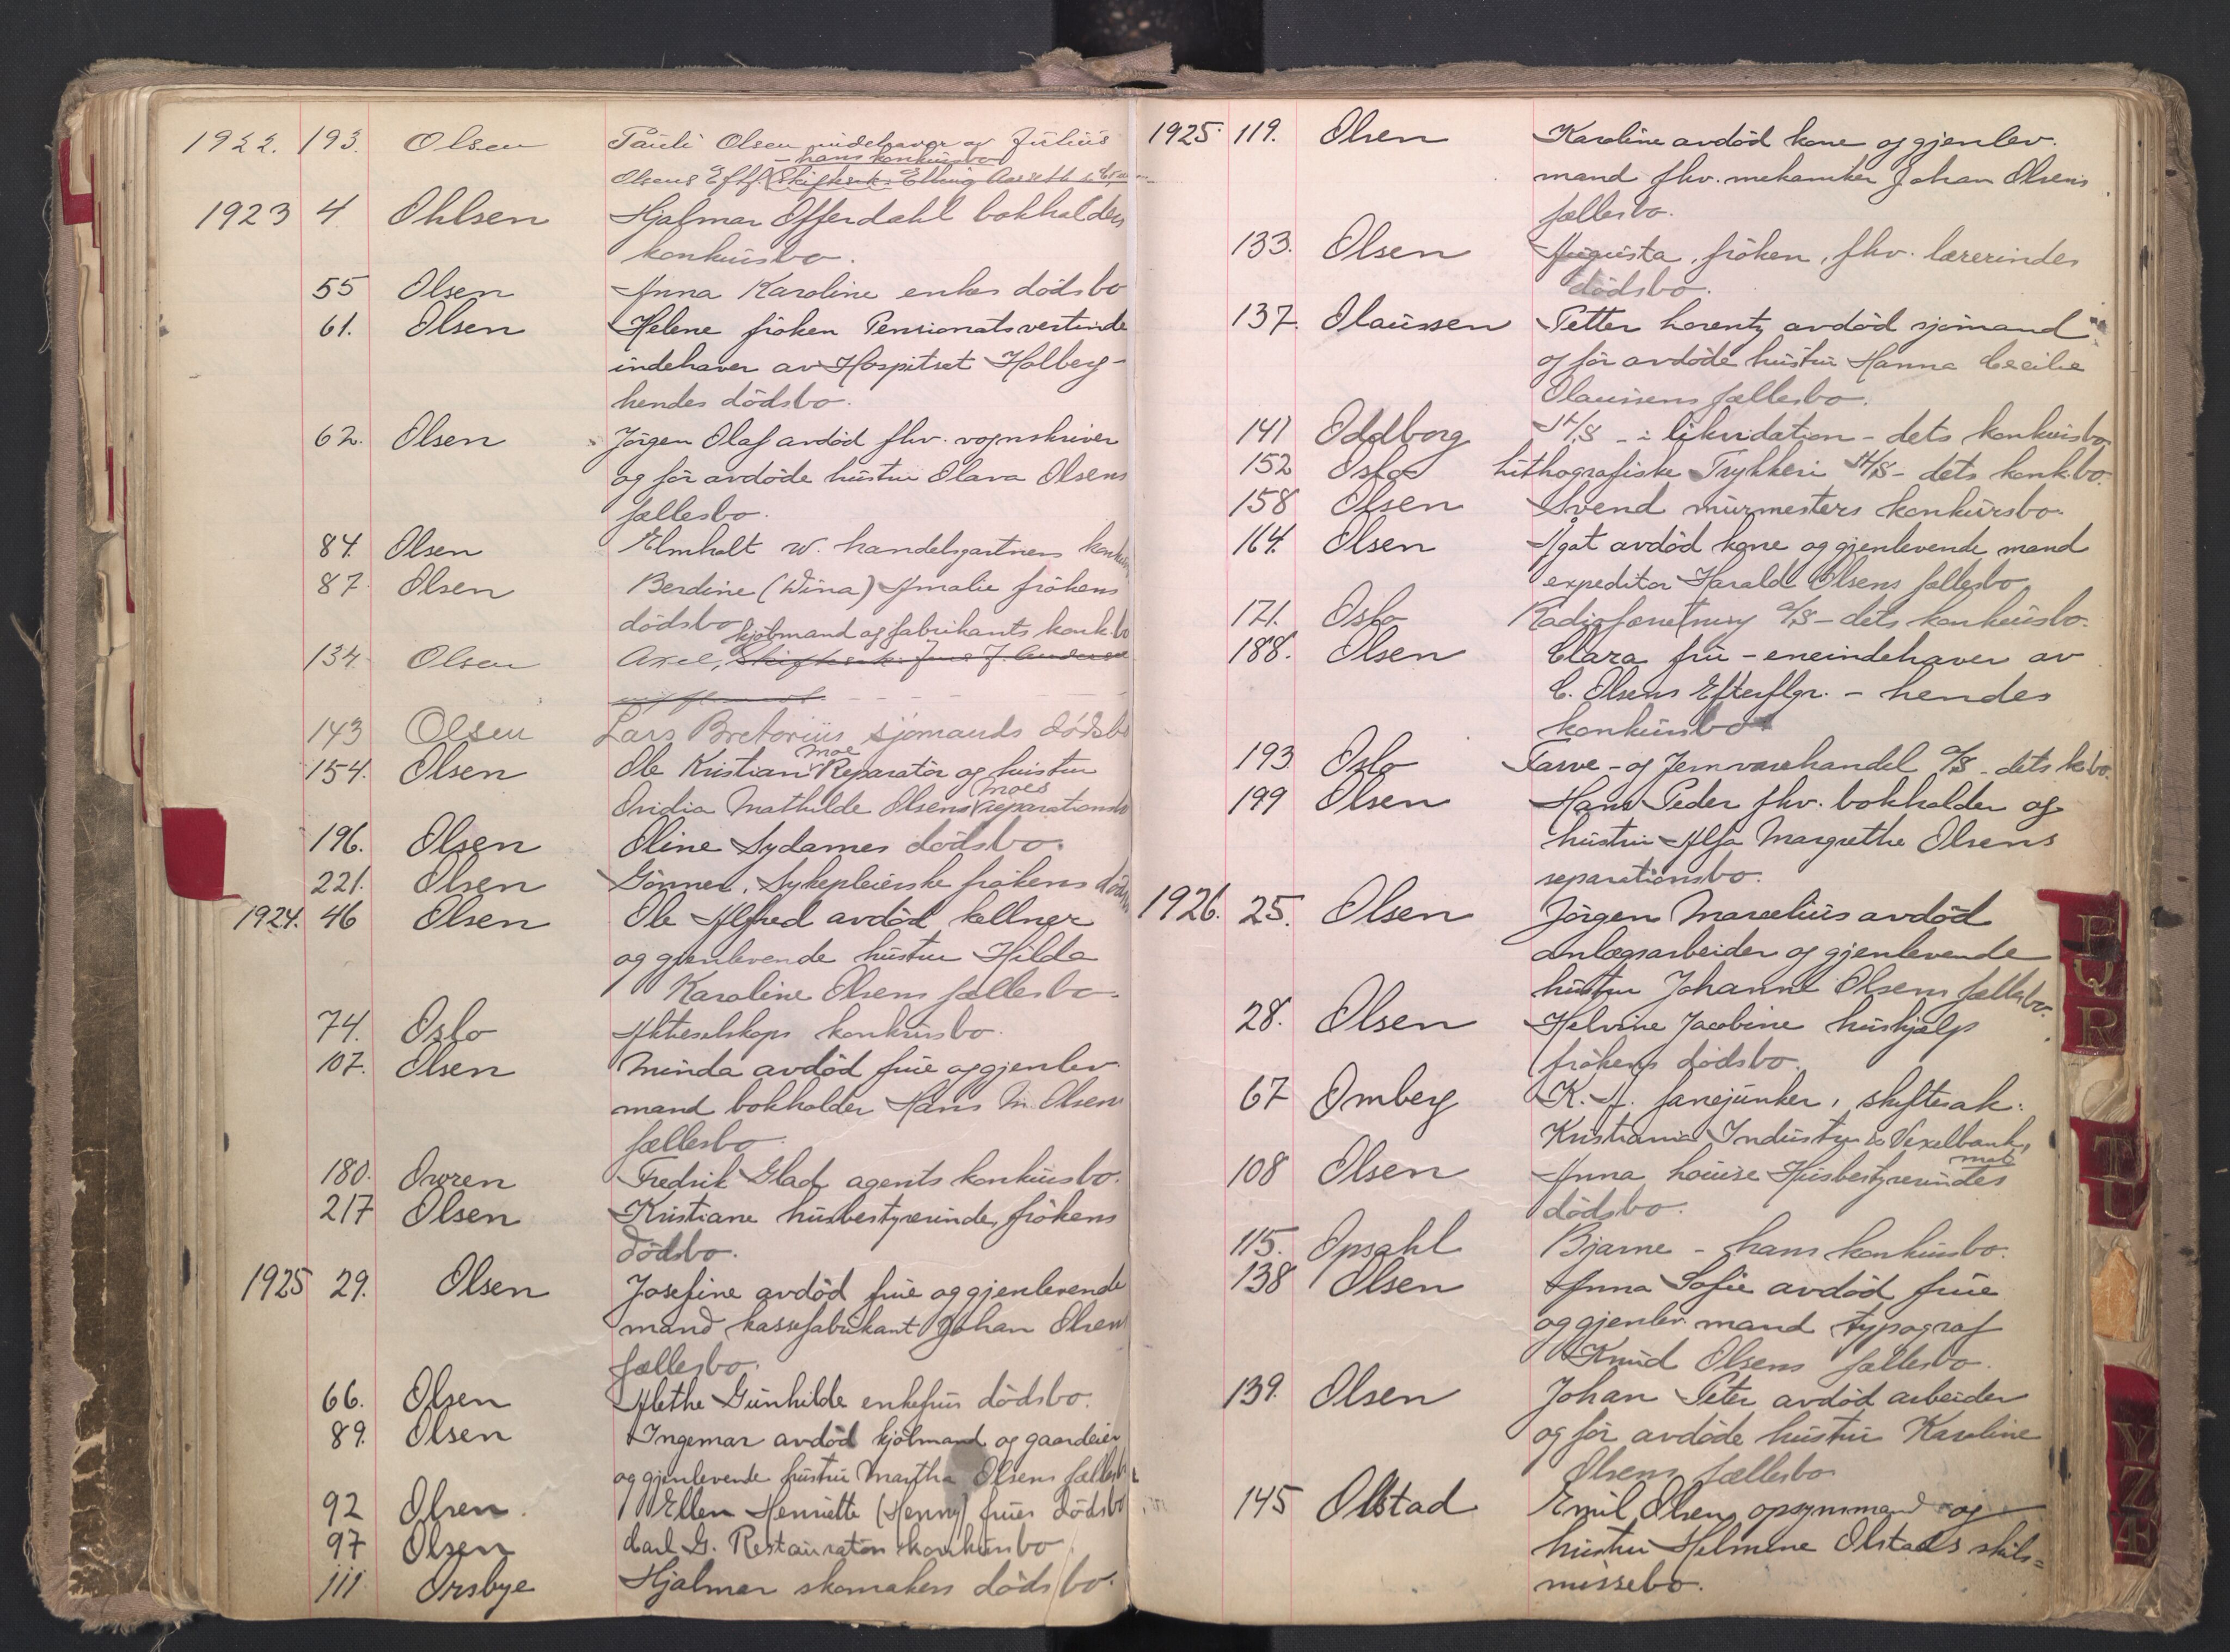 1922. 193. Olsen Pauli Olsen indehaver av Julius
- hans konkursbo
Olsens Eftf. Skiftesak: Elling Aaseth
1923 4 Ohlsen Hjalmar Offerdahl bokholders
konkursbo.
55 Olsen Anna Karoline enkes dödsbo
61. Olsen Helene fröken Pensionatsvertinde
indehaver av Hospitset Holberg -
hendes dödsbo.
62. Olsen Jörgen Olaf avdöd fhv. vognskriver
og för avdöde hustru Olava Olsens
fællesbo.
84. Olsen Elmholt W. handelsgartners konkurs
87. Olsen Berdine (Dina) Amalie frökens
dödsbo
kjöbmand og fabrikants konk.bo
134. Olsen Axel, Skiftesak: Jens J. Andersen
143 Olsen Lars Bretorius sjömands dödsbo
moe
154. Olsen Ole Kristian Reparatör og hustru
moes
Ovidia Mathilde Olsens separationsbo
196. Olsen Oline Sydames dödsbo.
221. Olsen Gönner. Sykepleierske frökens dödsbo
1924. 46 Olsen Ole Alfred avdöd kellner
og gjenlevende hustru Hilda
Karoline Olsens fællesbo.
74. Oslo Aktieselskaps konkursbo.
107. Olsen Minda avdöd frue og gjenlev.
mand bokholder Hans M. Olsens
fællesbo.
180. Owren Fredrik Glad agents konkursbo.
217 Olsen Kristiane husbestyrerinde, frökens
dödsbo.
1925 29. Olsen Josefine avdöd frue og gjenlevende
mand kassefabrikant Johan Olsens
fællesbo.
66. Olsen Alethe Gunhilde enkefrus dödsbo.
89. Olsen Ingemar avdöd kjöbmand og gaardeier
og gjenlevende hustru Martha Olsens fællesbo
92 Olsen. Ellen Henriette (Henny) frues dödsbo
97 Olsen Carl G. Restauratörs konkursbo
111 Orsbye Hjalmar skomakers dödsbo.
1925. 119. Olsen Karoline avdöd kone og gjenlev.
mand fhv. mekaniker Johan Olsens
fællesbo.
133. Olsen Augusta, fröken, fhv. lærerindes
dödsbo.
137. Olaussen Petter Lorentz avdöd sjömand
og för avdöde hustru Hanna Cecilie
Olaussens fællesbo.
141 Oddborg A/S - i likvidation - dets konkursbo
152 Oslo Lithografiske Trykkeri A/S - dets konk.bo.
158 Olsen Svend murmesters konkursbo.
164. Olsen Ågot avdöd kone og gjenlevende mand
expeditör Harald Olsens fællesbo
171. Oslo Radioforretning A/S - dets konkursbo.
188. Olsen Clara fru - eneindehaver av
C. Olsens Efterflgr. - hendes
konkursbo
193 Oslo Farve- og Jernvarehandel A/S - dets k.bo.
199 Olsen Hans Peder fhv. bokholder og
hustru Alfa Margrethe Olsens
separationsbo.
1926. 25. Olsen Jörgen Marcelius avdöd
anlægsarbeider og gjenlevende
hustru Johanne Olsens fællesbo.
28. Olsen Helvine Jacobine hushjælp
frökens dödsbo.
67 Omberg K. A. fanejunker, skiftesak:
Kristiania Industri & Vexelbank,
108 Olsen Anna Louise Husbestyrerindes
dödsbo.
115. Opsahl Bjarne - hans konkursbo.
138 Olsen Anna Sofie avdöd frue
og gjenlev. mand typograf
Knud Olsens fællesbo.
139. Olsen Johan Peter avdöd arbeider
og för avdöde hustru Karoline
Olsens fællesbo
145 Olstad Emil Olsen, opsynsmand og
hustru Helmine Olstads skils=
missebo.
P
Q
R
T
U
Y
Z
Æ